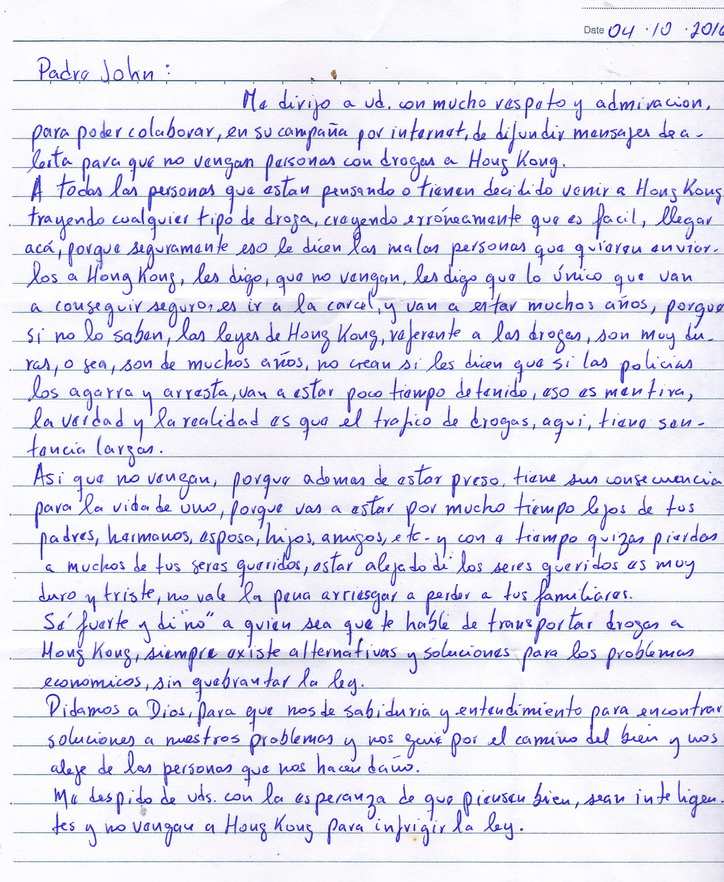 Date 04 · 10 · 2016
Padre John :
Me dirijo a ud. con mucho respeto y admiracion,
para poder colaborar, en su campaña por internet, de difundir mensajes de a-
lerta para que no vengan personas con drogas a Hong Kong.
A todas las personas que estan pensando o tienen decidido venir a Hong Kong
trayendo cualquier tipo de droga, creyendo erróneamente que es facil, llegar
acá, porque seguramente eso le dicen las malas personas que quieren enviar-
los a Hong Kong, les digo, que no vengan, les digo que lo único que van
a conseguir seguro, es ir a la carcel, y van a estar muchos años, porque
si no lo saben, las leyes de Hong Kong, referente a las drogas, son muy du-
ras, o sea, son de muchos años, no crean si les dicen que si las policias
los agarra y arresta, van a estar poco tiempo detenido, eso es mentira,
la verdad y la realidad es que el trafico de drogas, aqui, tiene sen-
tencia largas.
Asi que no vengan, porque ademas de estar preso, tiene sus consecuencia
para la vida de uno, porque vas a estar por mucho tiempo lejos de tus
padres, hermanos, esposa, hijos, amigos, etc- y con e tiempo quizas pierdas
a muchos de tus seres queridos, estar alejado de los seres queridos es muy
duro y triste, no vale la pena arriesgar a perder a tus familiares.
Sé fuerte y di "no" a quien sea que te hable de transportar drogas a
Hong Kong, siempre existe alternativas y soluciones para los problemas
economicos, sin quebrantar la ley.
Pidamos a Dios, para que nos de sabiduria y entendimiento para encontrar
soluciones a nuestros problemas y nos guie por el camino del bien y nos
aleje de las personas que nos hacen daño.
Me despido de uds. con la esperanza de que piensen bien, sean inteligen-
tes y no vengan a Hong Kong para infrigir la ley.